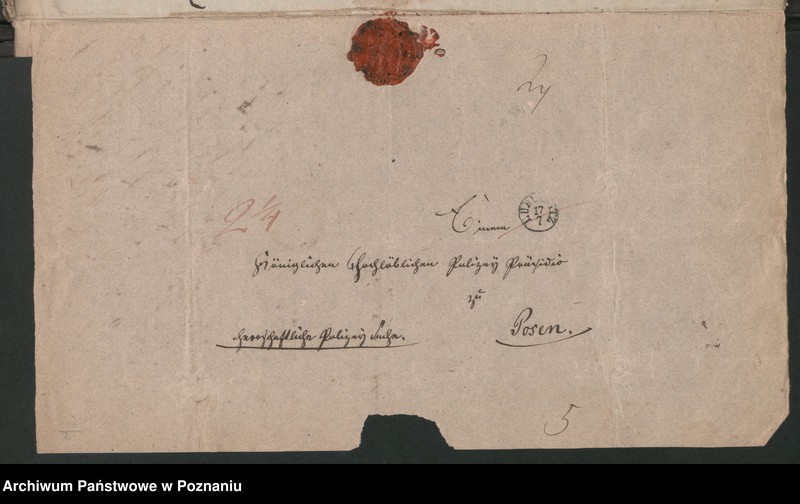 2 1/4
Einem
17
7
Königlichen Hochlöblichen Polizey Präsidio
zu
Posen.
herrschaftliche Polizey Sache.
5
Archiwum Państwowe w Poznaniu